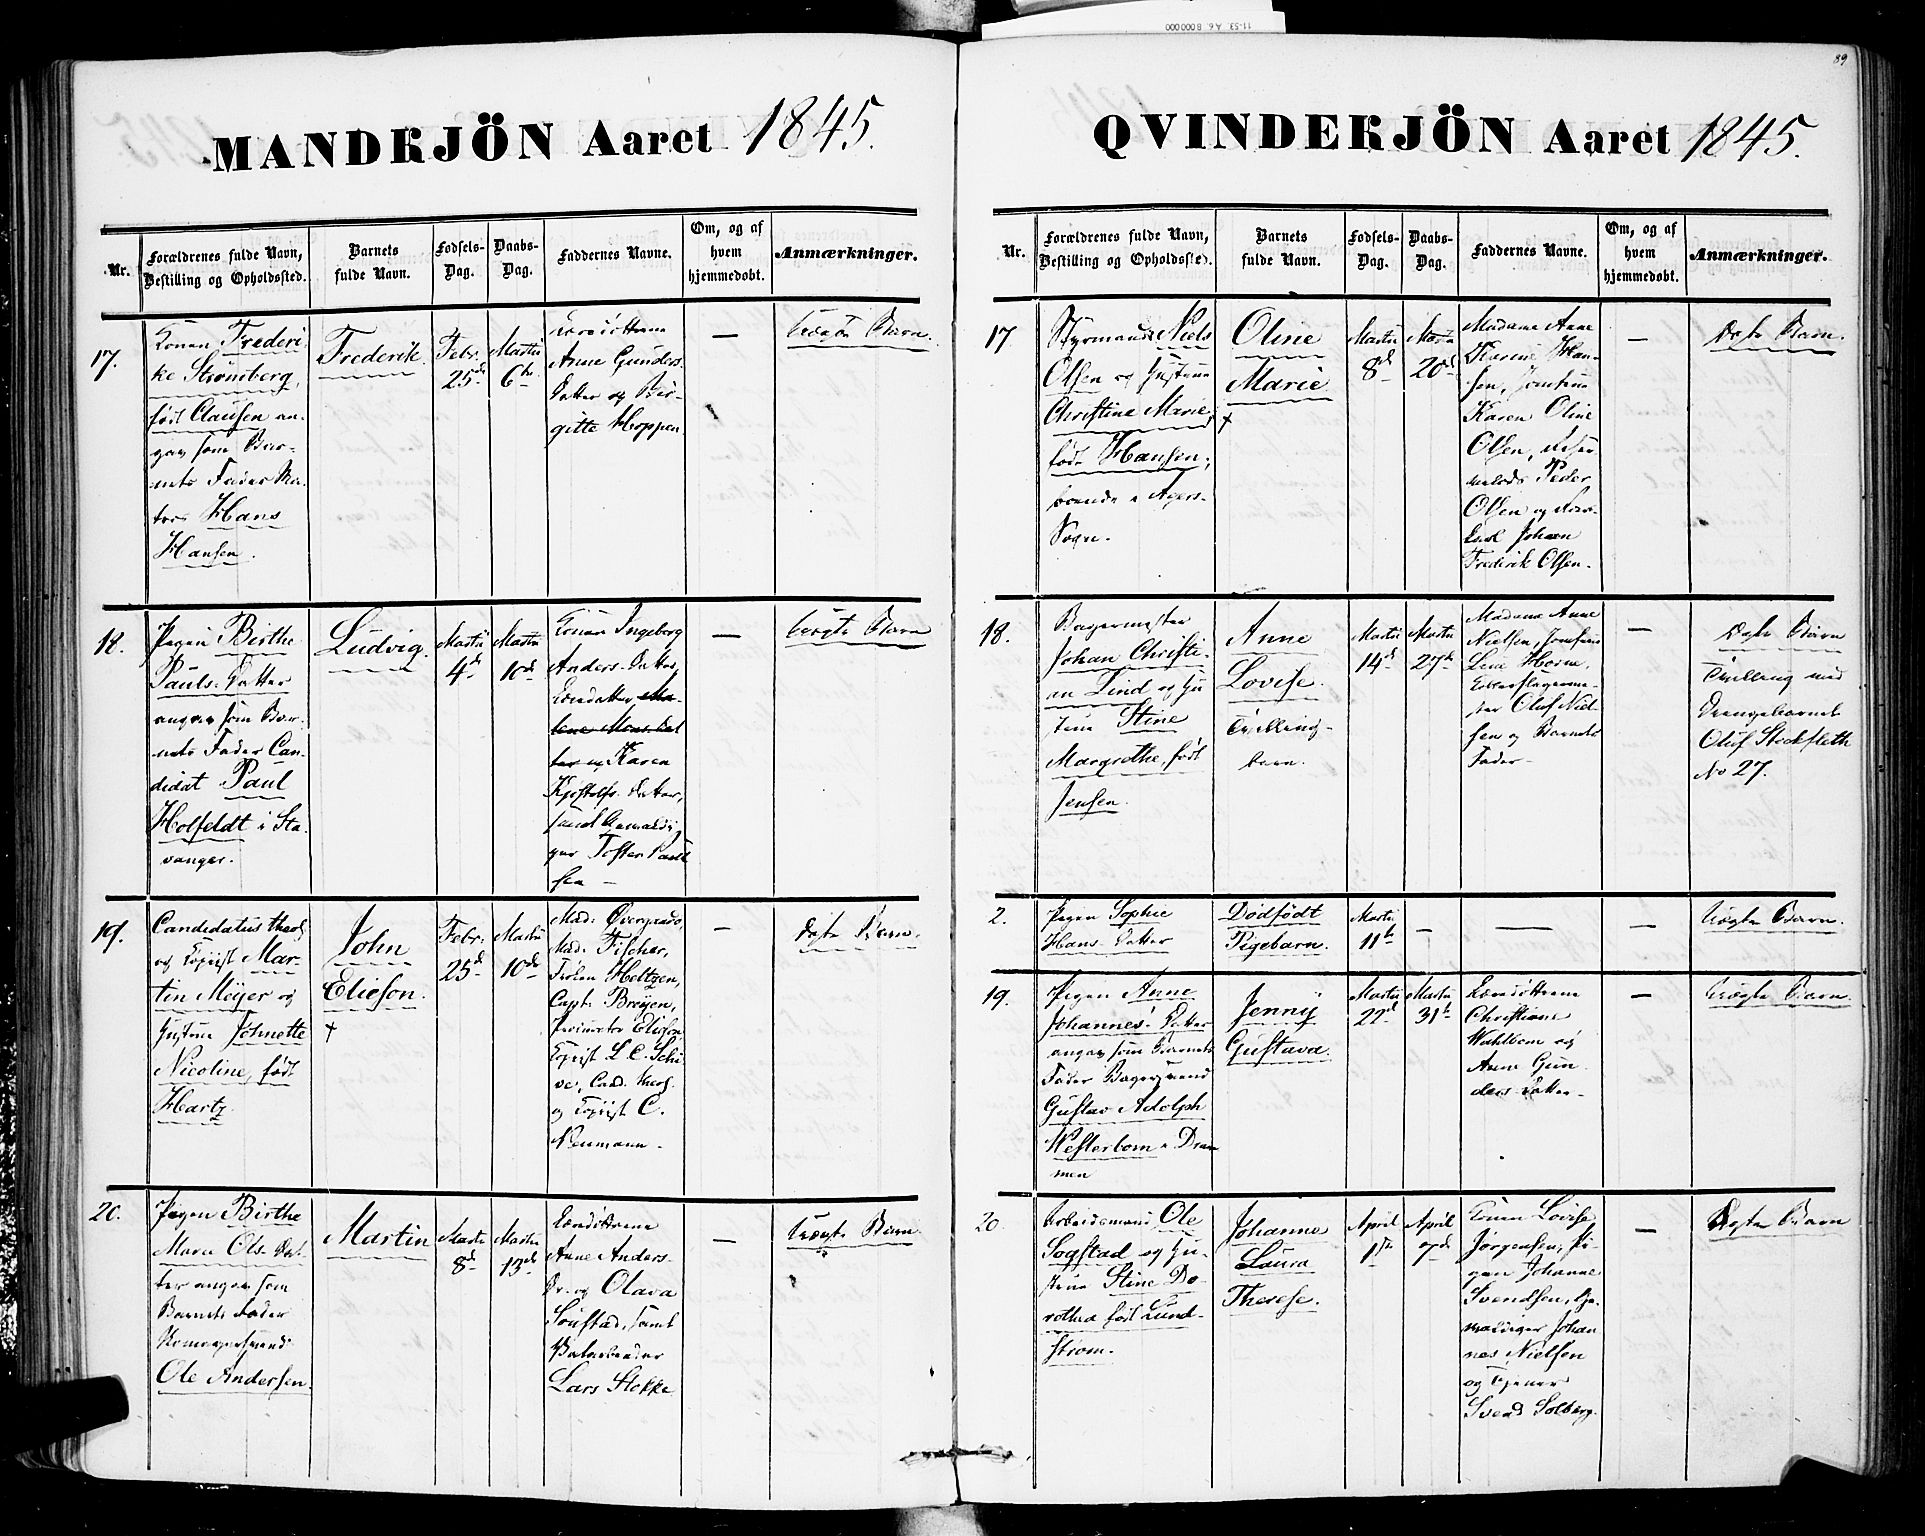 11-53. A6. B000000
89
MANDKJÖN Aaret 1845.
Nr.
Forældrenes fulde Navn,
Bestilling og Opholdssted.
Barnets
fulde Navn.
Fødsels-
Dag.
Daabs-
Dag.
Faddernes Navne.
Om, og af
hvem
hjemmedøbt.
Anmærkninger.
17.
Konen Frederi-
ke Strømberg,
født Clausen an-
gav som Bar-
nets Fader Ma-
Hans
Hansen.
Frederik
Febr.
25de
Martii
6te
Anne Gunders
Datter og Bir-
gitte Hoppen.
—
Uægte Barn.
18.
Pigen Birthe
Pauls-Datter
angav som Bar-
nets Fader Can-
didat Paul
Holfeldt i Sta-
vanger.
Ludvig.
Martii
4de
Martii
10de
Konen Ingeborg
Anders-Datter,
og Karen
samt
Tosten Paul
sen —
—
Uægte Barn
19.
Candidatus theol.
og Copiist Mar-
tin Meyer og
Hustrue Johnette
Nicoline, født
Hartz.
John
Elieson.
†
Febr.
25de
Martii
10de
Mad. Overgaard,
Mad. Fischer,
Frøken Heltzen,
Capt. Breyen,
Procurator Elieson
Copiist L. C. Schi-
ve, Cand. theol.
og Copiist C.
Neumann.
—
Ægte Barn.
20.
Pigen Birthe
Marie Ols-Dat-
ter angav som
Barnets Fader
Ole Andersen.
Martin
Martii
8de
Martii
13de
Anne Anders-
Dr. og Olava
samt
Lars Stokke
—
Uægte Barn
QVINDEKJÖN Aaret 1845.
Nr.
Forældrenes fulde Navn,
Bestilling og Opholdssted.
Barnets
fulde Navn.
Fødsels-
Dag.
Daabs-
Dag.
Faddernes Navne.
Om, og af
hvem
hjemmedøbt.
Anmærkninger.
17.
Styrmand Niels
Olsen og Hustrue
Christine Marie,
født Hansen,
boende i Agers-
Sogn.
Oline
Marie
†
Martii
8de
Martii
20de
Madame Anne
Karine Han-
sen, Jomfrue
Karen Oline
Olsen,
Peder
Olsen og
Johan
Frederik Olsen.
—
Ægte Barn.
18.
Bagermester
Johan Christi-
an Lind og Hu-
strue Stine
Margrethe, født
Jensen.
Anne
Lovise.
Tvilling-
barn.
Martii
14de
Martii
27de
Madame Anne
Nielsen, Jomfrue
Lene Horne,
ster Oluf Niel-
sen og Barnets
Fader.
—
Ægte Barn
Tvilling med
Drengebarnet
Oluf Stockfleth
No 27.
2.
Pigen Sophie
Hans-Datter
Dødfødt
Pigebarn.
Martii
11te
—
—
—
Uægte Barn.
19.
Pigen Anne
Johannes-Datter
angav som Barnets
Fader Bagersvend
Gustav Adolph
Westerbom i Dram
men
Jenny
Gustava.
Martii
22de
Martii
31te
Christiane
Wahlbom og
Anne Gun-
ders-Datter.
—
Uægte Barn.
20.
Arbeidsmand Ole
Sogstad og Hu-
strue Stine Do-
rothea født Lund-
strøm.
Johanne
Laura
Therese.
April
1ste
April
7de
Konen Lovise
Jørgensen, Pi-
gen Johanne
Svendsen, Ge-
valdiger Johan-
nes Nielsen
og Tjener
Svend Solberg.
—
Ægte Barn